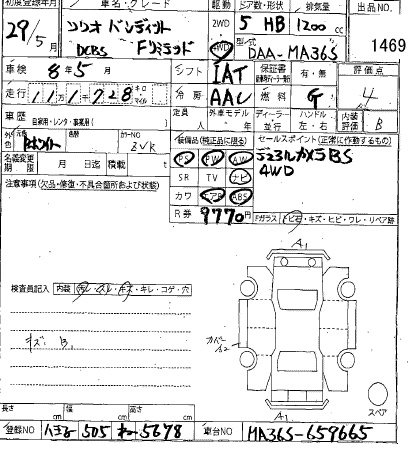 初度登録年月 車名・グレード 駆動 ドア数・形状 排気量 出品NO.
29年5月 ソリオ バンディット 2WD 5 HB 1200cc
DCBS Fリミテッド 4WD 型式 DAA-MA36S 1469
車検 8年5月 シフト IAT 保証書 有・無 評価点
走行 11万1千728 キロ マイル 冷房 AAC 燃料 G 4
車歴 自家用・レンタ・事業用( ) 定員 人 外車モデル 年 ディーラー 並行 ハンドル 左・右 内装評価 B
外色 カラーNO ZVR 装備品(純正品に限る) セールスポイント(正常に作動するもの)
名義変更期限 月 日迄 積載 t PS PW AW デュアルカメラBS
注意事項(欠品・修復・不具合箇所および状態) SR TV ナビ 4WD
カワ エアB ABS
R券 9770円 Fガラス トビ石・キズ・ヒビ・ワレ・リペア跡
A1
検査員記入 内装 汚レ・スレ・キズ・キレ・コゲ・穴
キズ B
カバー
A1
スペア
長さ cm 幅 cm 高さ cm
登録NO 八王子 505 5678 車台NO MA36S-659665